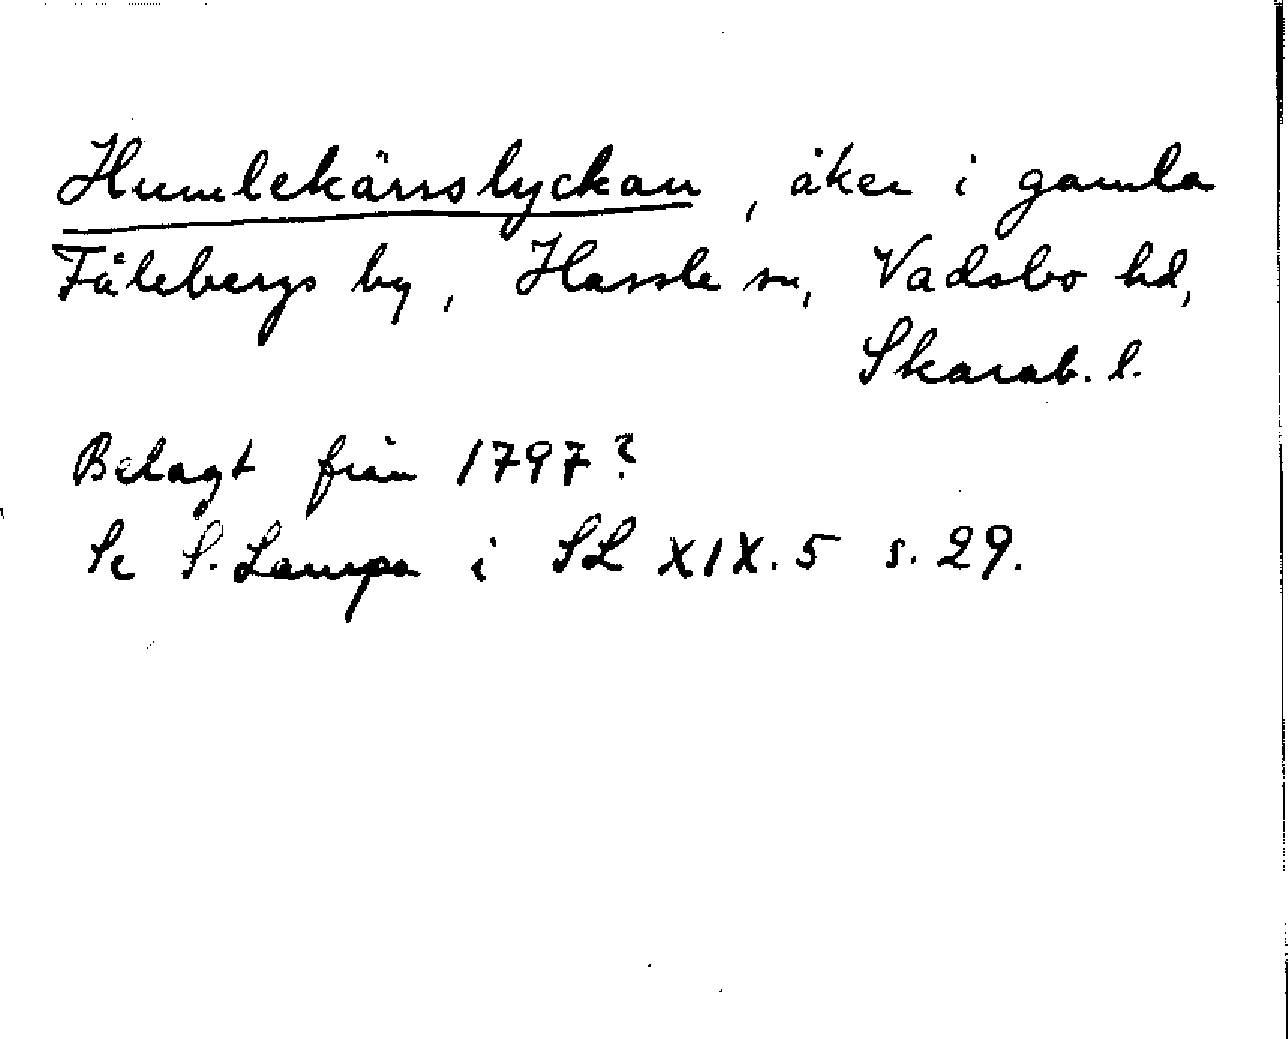 Humlekärrslyckan, åker i gamla
Fålebergs by, Hassle sn, Vadsbo hd,
Skarab. l.
Belagt från 1797?
Se S. Lampa i SL XIX.5 s. 29.